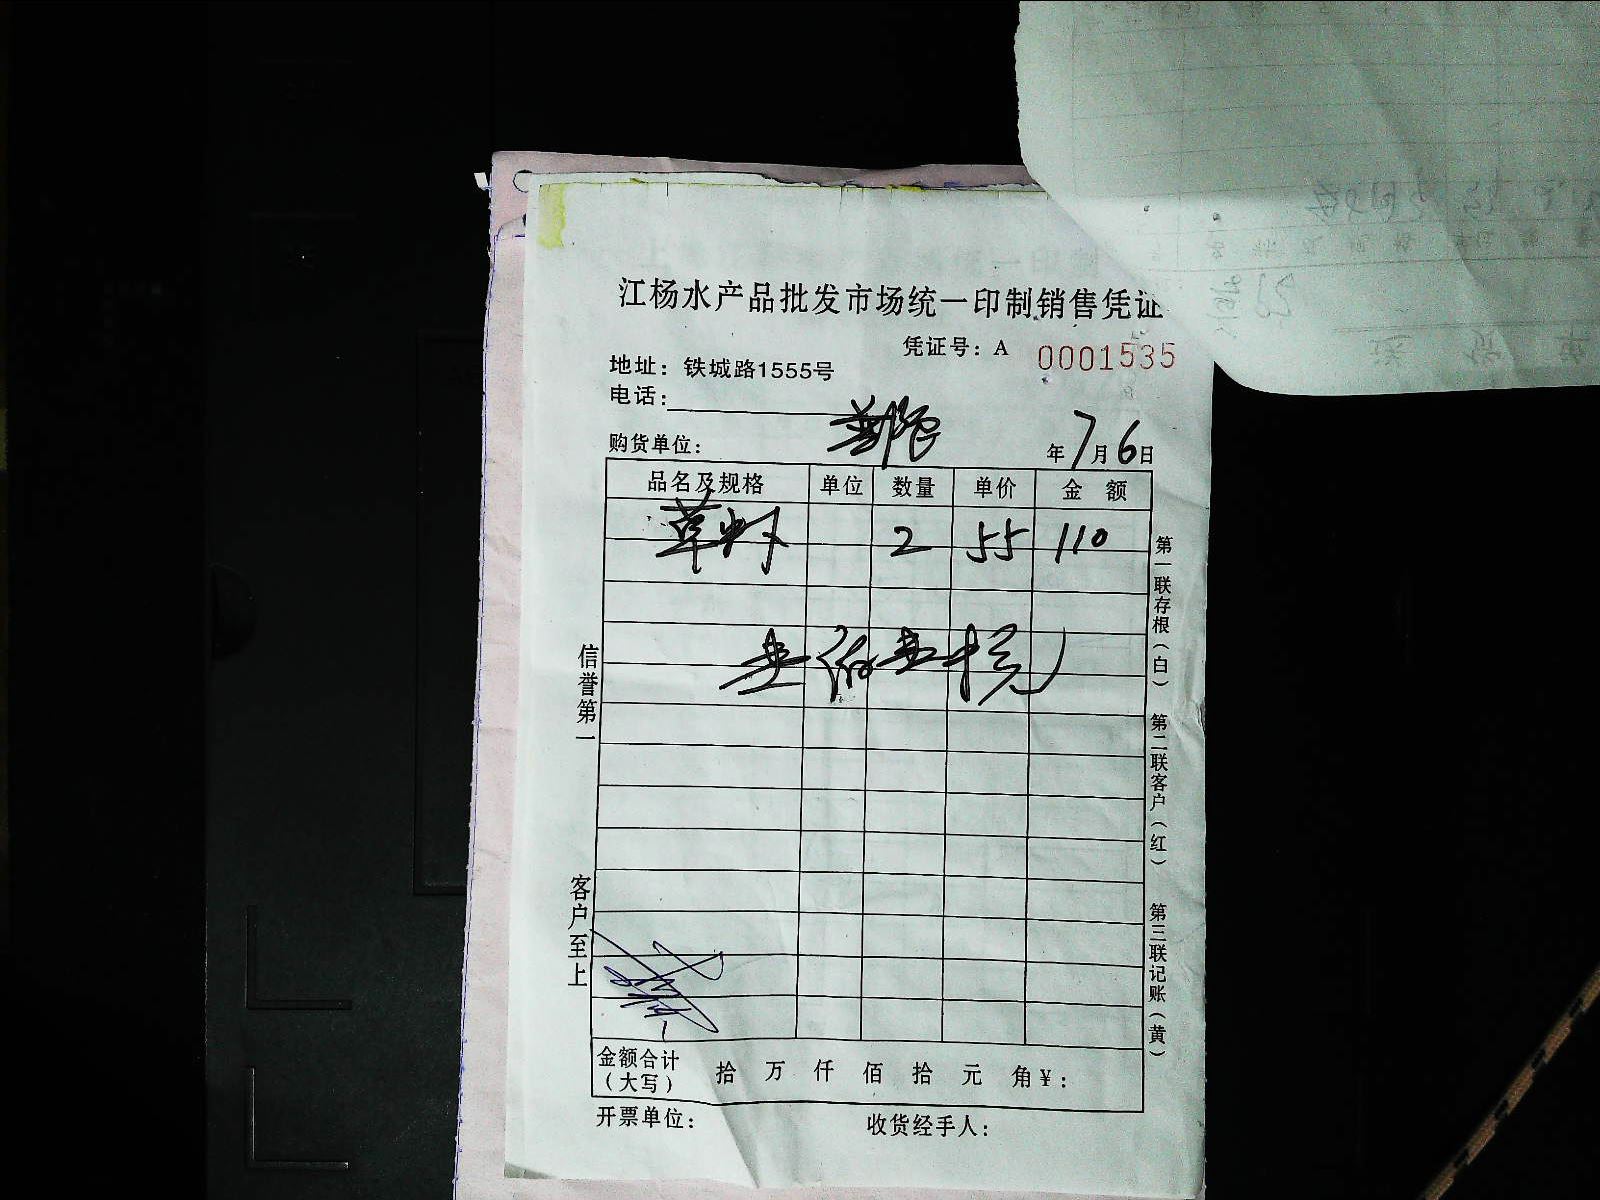 江杨水产品批发市场统一印制销售凭证
凭证号：A 0001535
地址：铁城路1555号
电话：
购货单位： 年7月6日
品名及规格 单位 数量 单价 金额
草虾 2 55 110
壹佰壹十元
信誉第一
客户至上
第一联存根（白）
第二联客户（红）
第三联记账（黄）
金额合计（大写） 拾 万 仟 佰 拾 元 角 ¥：
开票单位： 收货经手人：